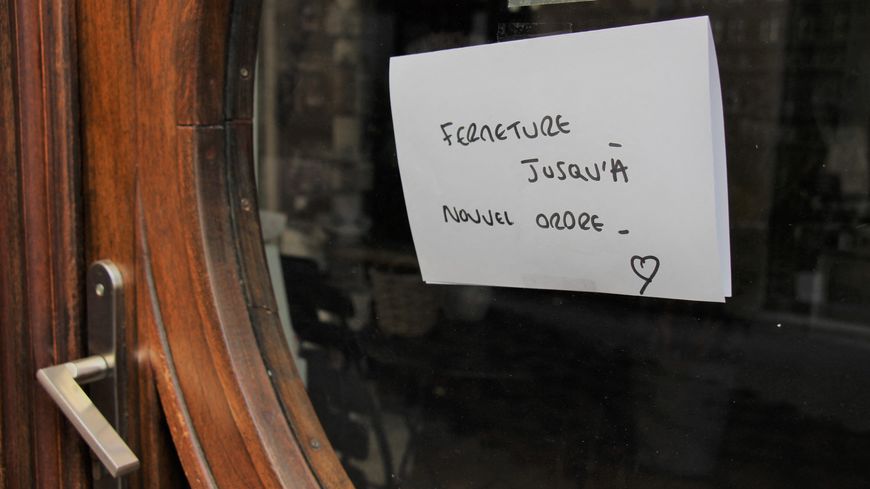 FERMETURE
JUSQU'À
NOUVEL ORDRE_